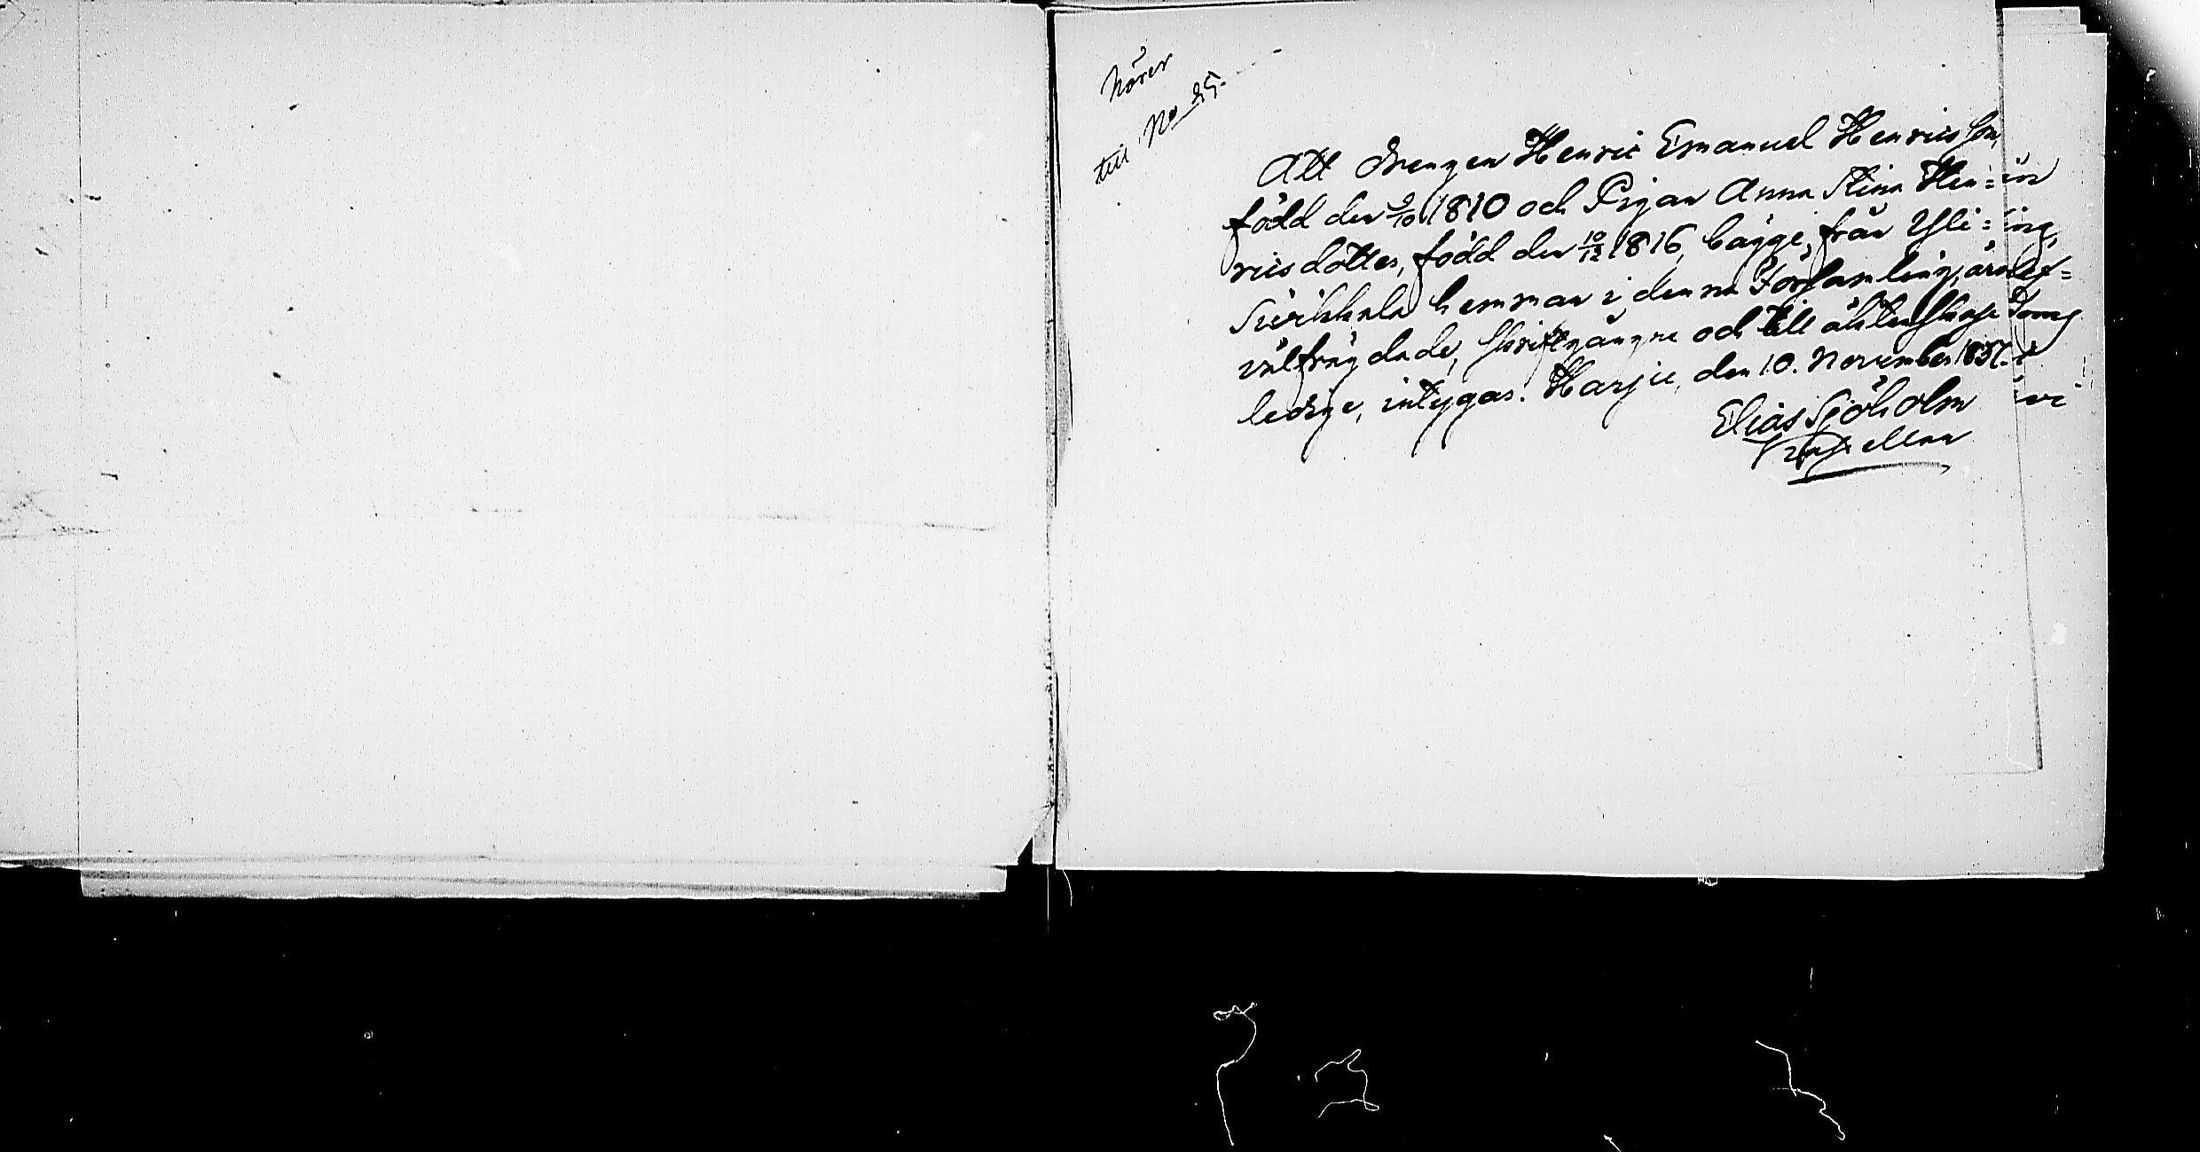 hörer
till No 25.
Att Drengen Henric Emanuel Henricsson,
född den 9/10 1810 och Pigan Anna Stina Hen=
ricsdotter, född den 10/12 1816, bägge, från Yli=
Sirikkala hemman i denna Församling, äro
välfrägdade, skriftgångne och till äktenskap
ledige, intygas. Karjie, den 10. November 1837.
Elias Sjöholm
Kapellan